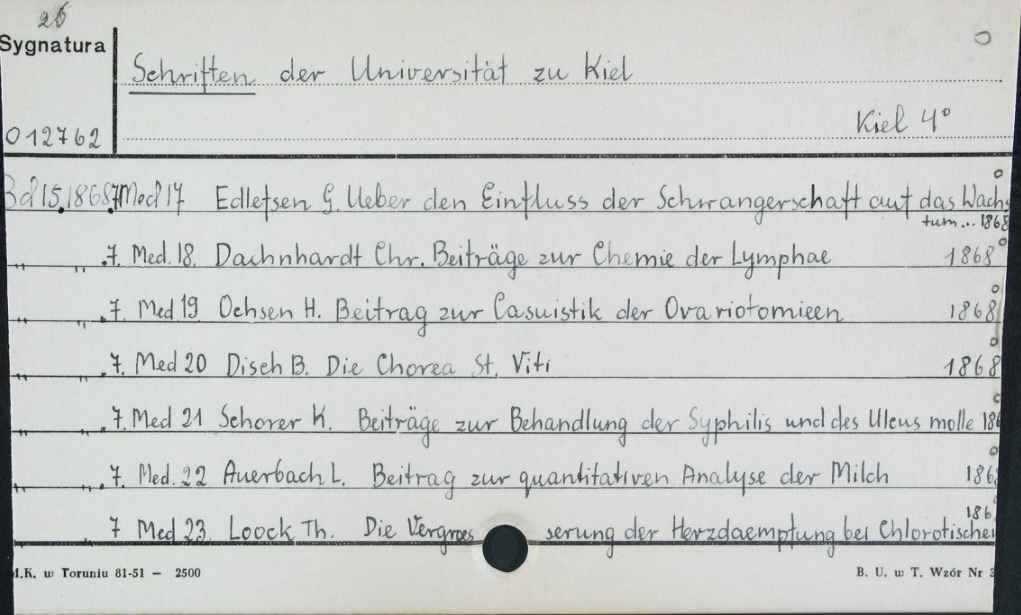 26
Sygnatura
Schriften der Universität zu Kiel
012762
Kiel 4°
Bd 15.1868.7 Med 17 Edlefsen G. Ueber den Einfluss der Schwangerschaft auf das Wachs
tum... 1868
" " .7. Med. 18. Dachnhardt Chr. Beiträge zur Chemie der Lymphae 1868
" " .7. Med 19 Ochsen H. Beitrag zur Casuistik der Ovariotomieen 1868
" " .7. Med 20 Diseh B. Die Chorea St. Viti 1868
" " .7. Med 21 Schorer K. Beiträge zur Behandlung der Syphilis und des Ulcus molle 186
" " .7. Med. 22 Auerbach L. Beitrag zur quantitativen Analyse der Milch 186
186
" " 7 Med 23. Loock Th. Die Vergroes serung der Herzdaempfung bei Chlorotischen
M.K. w Toruniu 81-51 — 2500
B. U. w T. Wzór Nr